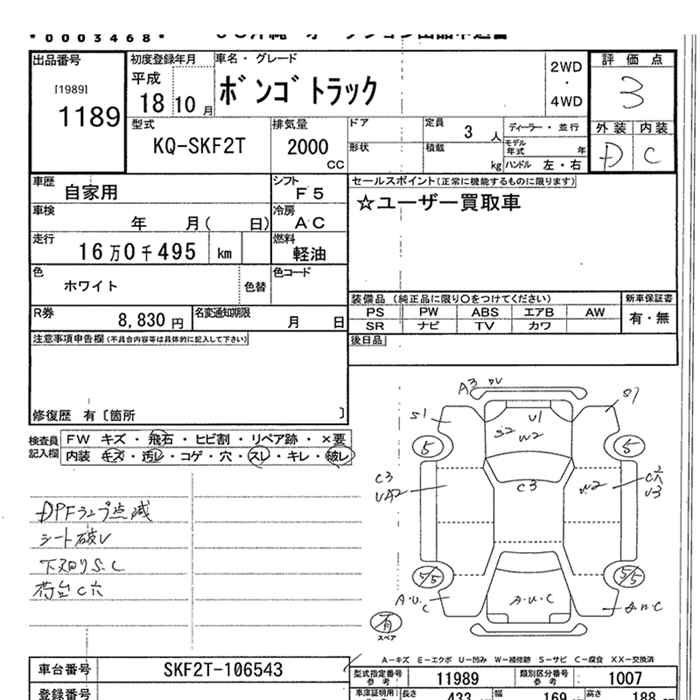 *0003468*
出品番号 [1989] 1189
初度登録年月 平成 18 10 月
車名・グレード ボンゴトラック
2WD ・ 4WD
評価点 3
外装 内装 D C
型式 KQ-SKF2T
排気量 2000 CC
ドア 形状
定員 3 人
積載 kg
ディーラー・並行
モデル年式 年
ハンドル 左・右
車歴 自家用
シフト F5
車検 年 月( 日)
冷房 AC
走行 16万0千495 km
燃料 軽油
色 ホワイト 色替
色コード
セールスポイント(正常に機能するものに限ります)
☆ユーザー買取車
装備品 (純正品に限り○をつけてください)
新車保証書 有・無
PS PW ABS エアB AW
SR ナビ TV カワ
R券 8,830 円
名変通知期限 月 日
後日品
注意事項申告欄(不具合内容等は具体的に記入して下さい)
修復歴 有〔箇所 〕
検査員記入欄
FW キズ・飛石・ヒビ割・リペア跡・×要
内装 キズ・汚レ・コゲ・穴・スレ・キレ・破レ
DPFランプ点滅
シート破レ
下廻りS.C
荷台C穴
A3
S1
S7
U1
S2
W2
5
5
C3
UA2
C3
W2
C穴
U3
5/5
5/5
A.U.C
A.U.C
有 スペア
A−キズ E−エクボ U−凹み W−補修跡 S−サビ C−腐食 XX−交換済
車台番号 SKF2T-106543
型式指定番号 参考 11989
類別区分番号 参考 1007
登録番号
車庫証明用 参考 長さ 433 幅 169 高さ 188